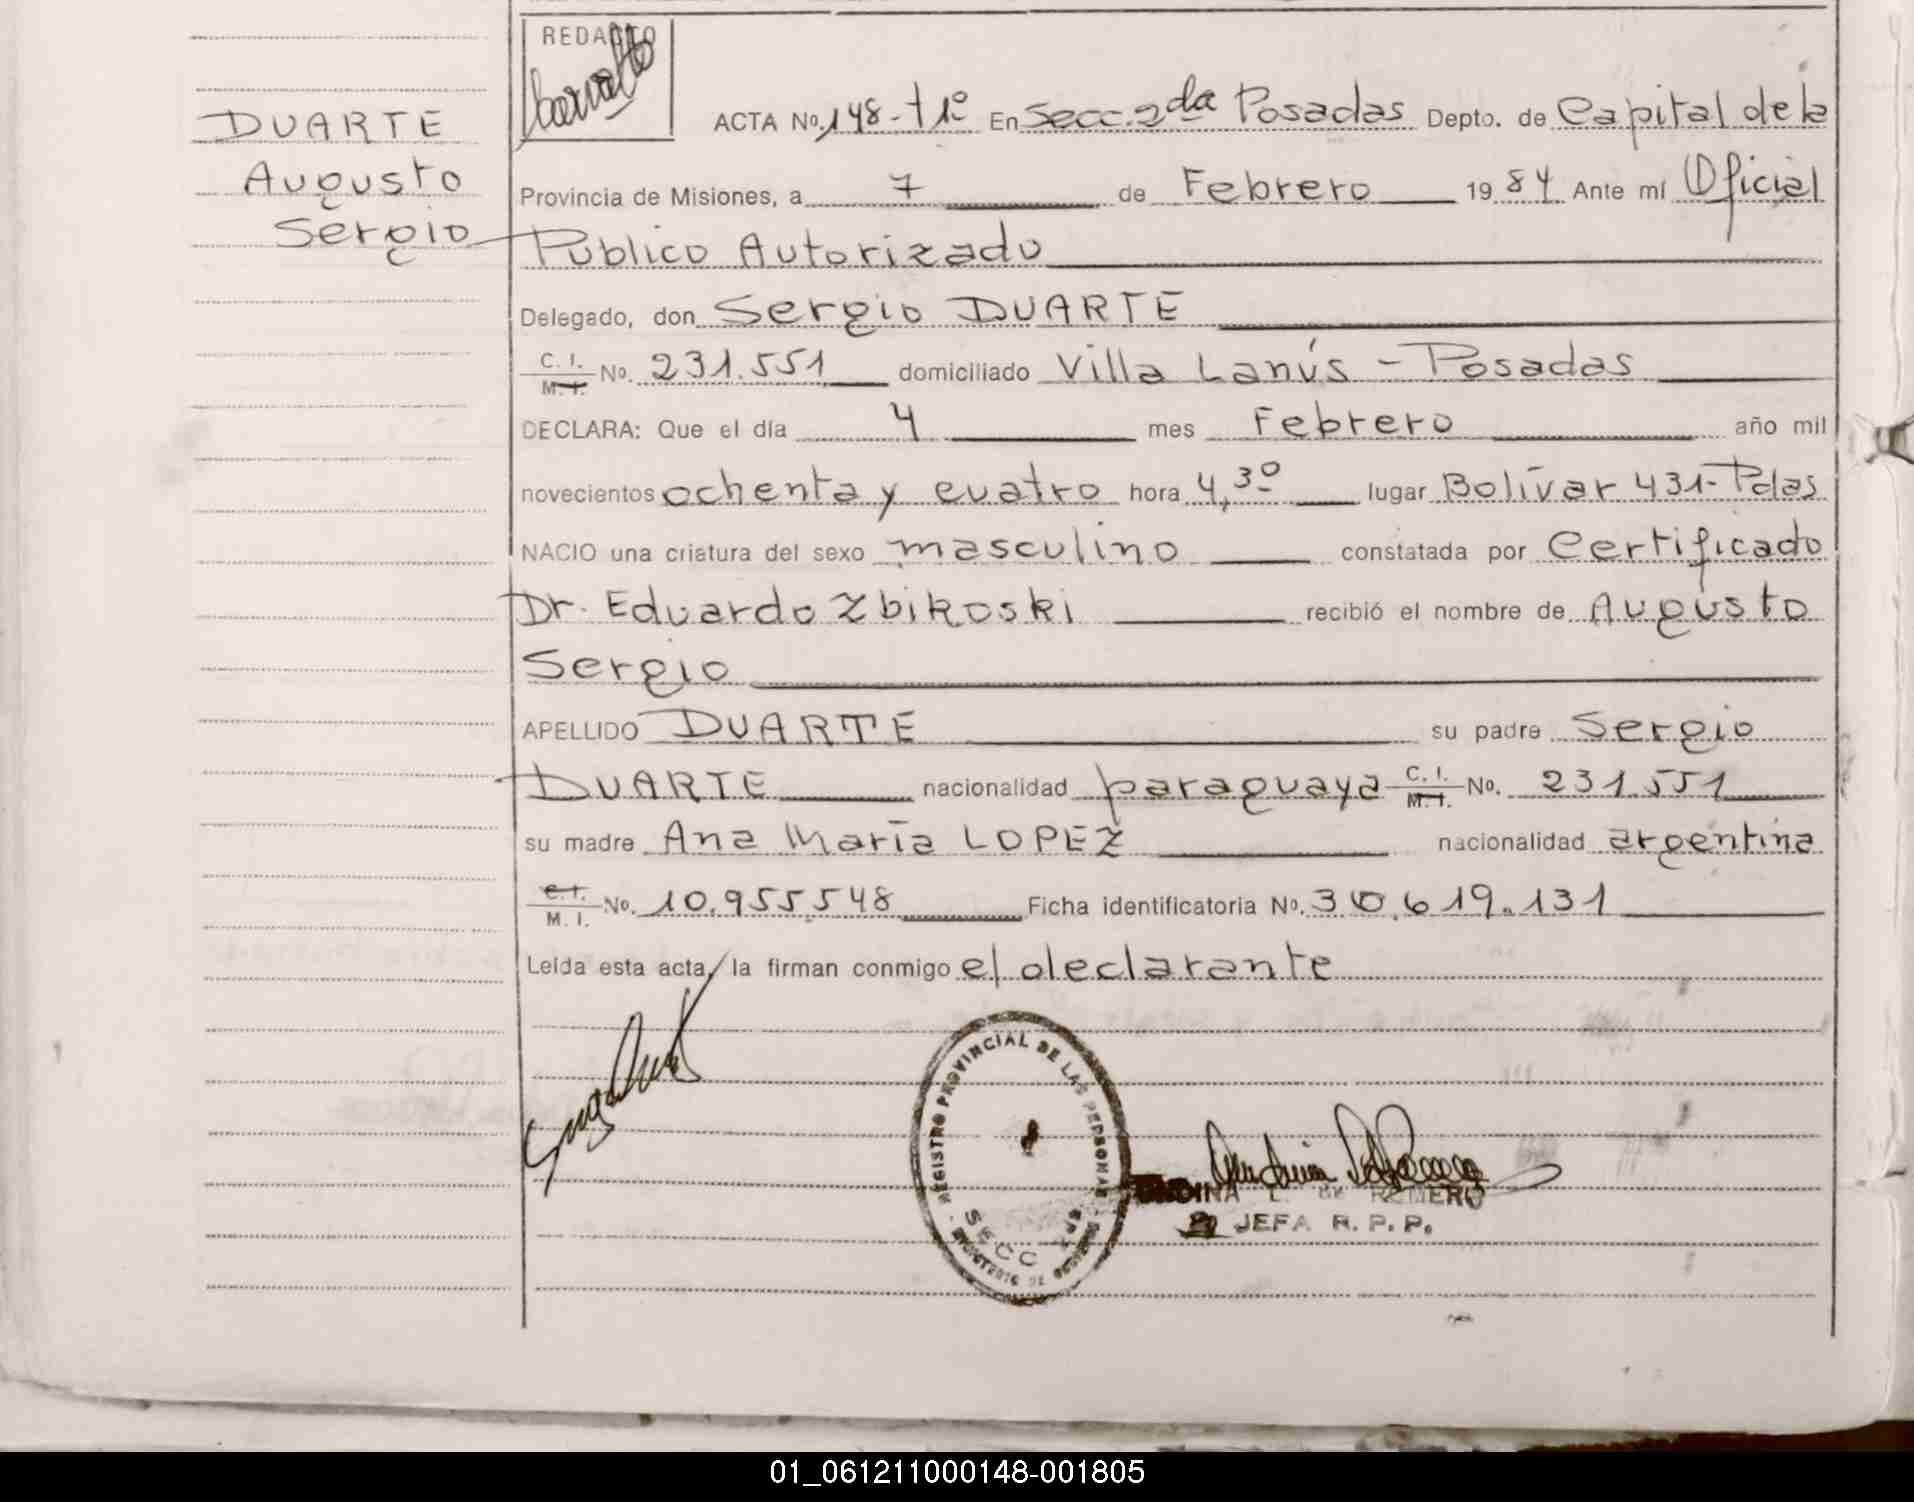 DUARTE
Augusto
Sergio
REDACTO
ACTA No. 148-t1º En Secc. 2da Posadas Depto. de Capital de la
Provincia de Misiones, a 7 de Febrero 1984 Ante mí Oficial
Público Autorizado
Delegado, don Sergio DUARTE
C. I. M. I. No. 231.551 domiciliado Villa Lanús - Posadas
DECLARA: Que el día 4 mes Febrero año mil
novecientos ochenta y cuatro hora 4,30 lugar Bolívar 431-Pdas
NACIO una criatura del sexo masculino constatada por Certificado
Dr. Eduardo Zbikoski recibió el nombre de Augusto
Sergio
APELLIDO DUARTE su padre Sergio
DUARTE nacionalidad paraguaya C. I. M. I. No. 231.551
su madre Ana María LOPEZ nacionalidad argentina
C. I. M. I. No. 10.955.548 Ficha identificatoria No. 30.619.131
Leída esta acta, la firman conmigo el declarante
REGISTRO PROVINCIAL DE LAS PERSONAS
SECC
DE ROMERO
JEFA R. P. P.
01_061211000148-001805